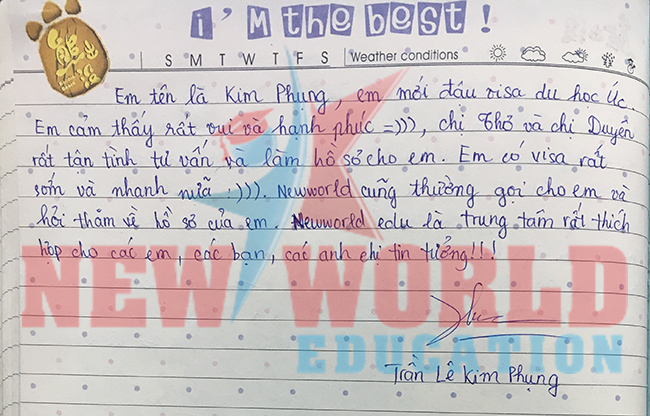 i'M the best!
S M T W T F S Weather conditions
Em tên là Kim Phụng, em mới đậu visa du học Úc.
Em cảm thấy rất vui và hạnh phúc =))), chị Thỏ và chị Duyên
rất tận tình tư vấn và làm hồ sơ cho em. Em có visa rất
sớm và nhanh nữa :))). Newworld cũng thường gọi cho em và
hỏi thăm về hồ sơ của em. Newworld edu là trung tâm rất thích
hợp cho các em, các bạn, các anh chị tin tưởng!!!
NEW WORLD
EDUCATION
Trần Lê Kim Phụng